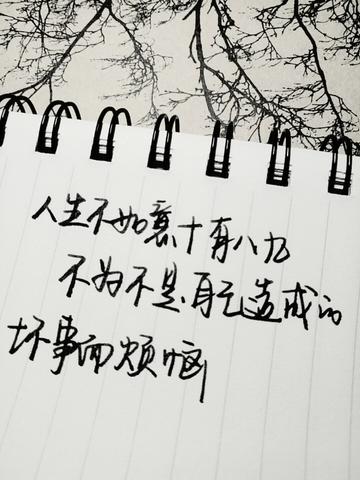 人生不如意十有八九
不为不是自己造成的
坏事而烦恼